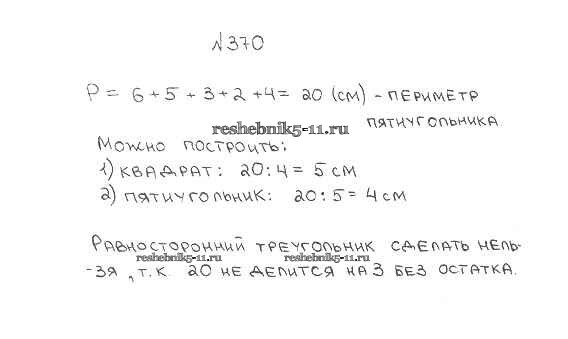 №370
P = 6 + 5 + 3 + 2 + 4 = 20 (см) - ПЕРИМЕТР
ПЯТИУГОЛЬНИКА
reshebnik5-11.ru
МОЖНО ПОСТРОИТЬ:
1) КВАДРАТ: 20:4 = 5 см
2) ПЯТИУГОЛЬНИК: 20:5 = 4 см
РАВНОСТОРОННИЙ ТРЕУГОЛЬНИК СДЕЛАТЬ НЕЛЬ-
reshebnik5-11.ru reshebnik5-11.ru
-ЗЯ, Т.К. 20 НЕ ДЕЛИТСЯ НА 3 БЕЗ ОСТАТКА.